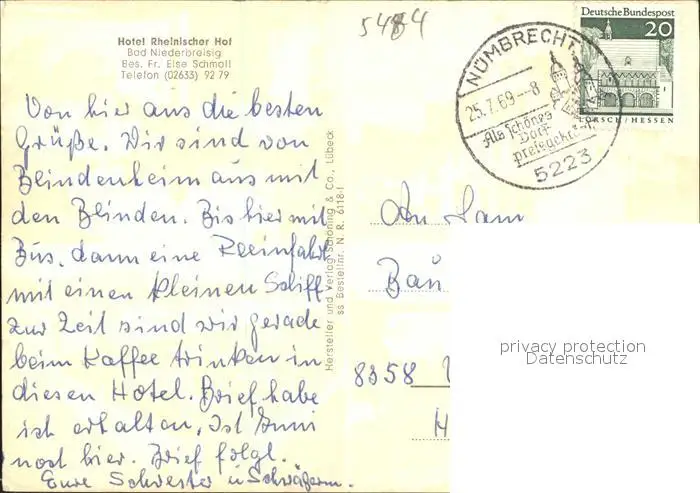 5484
Hotel Rheinischer Hof
Bad Niederbreisig
Bes. Fr. Else Schmoll
Telefon (02633) 92 79
Von hier aus die besten
Grüße. Wir sind von
Blindenheim aus mit
den Blinden. Bis hier mit
Bus, dann eine Reeinfahrt
mit einen kleinen Schiff.
Zur Zeit sind wir gerade
beim Kaffee trinken in
diesen Hotel. Brief habe
ich erhalten, Ist Gunni
noch hier. Brief folgt.
Eure Schwester u Schwägerin.
Hersteller und Verlag Schöning & Co., Lübeck
ss Bestellnr. N. R. 6118-I
NÜMBRECHT
25.7.69--8
Als schönes
Dorf
preisgekrönt
5223
Deutsche Bundespost
20
LORSCH/HESSEN
An Fam
Bau
8358
H
privacy protection
Datenschutz